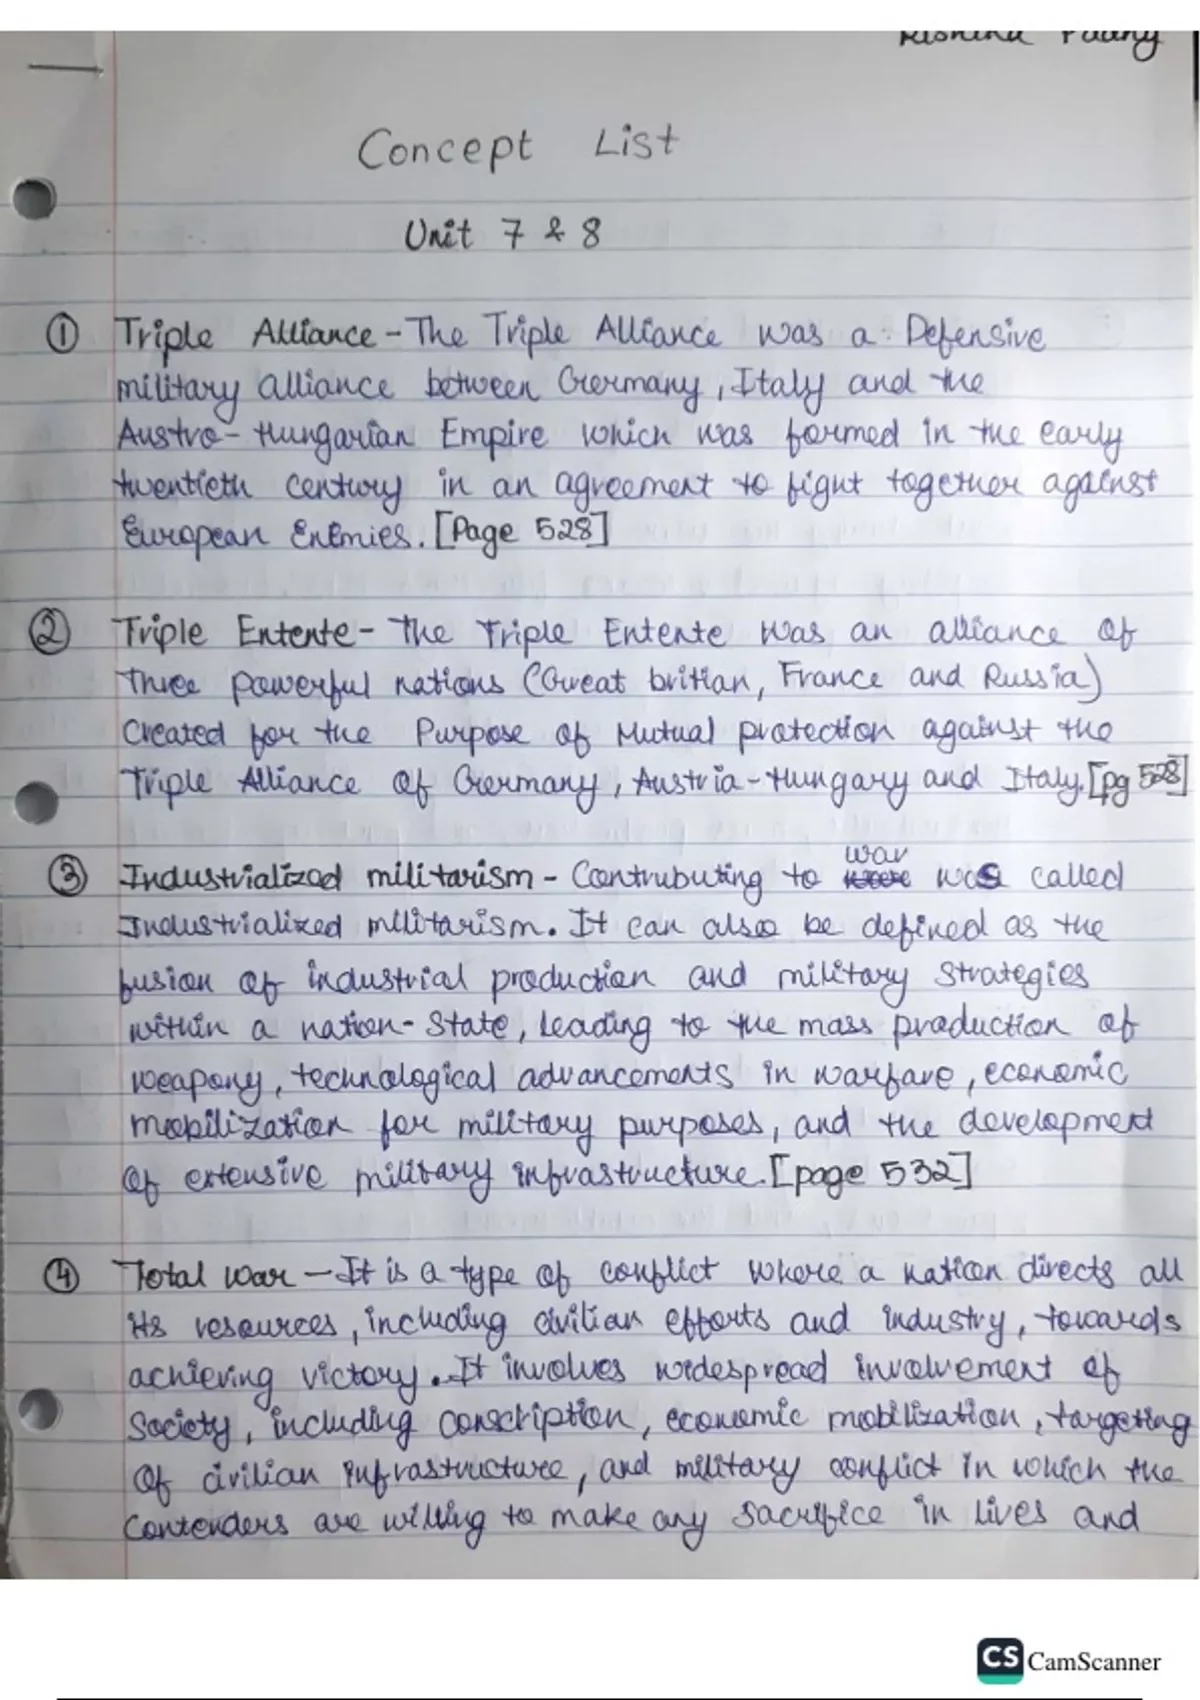 Concept List
Unit 7 & 8
① Triple Alliance - The Triple Alliance was a Defensive
military alliance between Germany, Italy and the
Austro-Hungarian Empire which was formed in the early
twentieth century in an agreement to fight together against
European Enemies. [Page 528]
② Triple Entente - The Triple Entente was an alliance of
three powerful nations (Great britian, France and Russia)
Created for the Purpose of Mutual protection against the
Triple Alliance of Germany, Austria-Hungary and Italy. [pg 528]
③ Industrialized militarism - Contrubuting to war was called
Industrialized militarism. It can also be defined as the
fusion of industrial production and military strategies
within a nation-state, leading to the mass production of
weapony, technological advancements in warfare, economic
mobilization for military purposes, and the development
of extensive military infrastructure. [page 532]
④ Total war - It is a type of conflict where a nation directs all
its resources, including civilian efforts and industry, towards
achieving victory. It involves widespread involvement of
Society, including conscription, economic mobilization, targeting
of civilian infrastructure, and military conflict in which the
Contenders are willing to make any Sacrifice in lives and
CS CamScanner